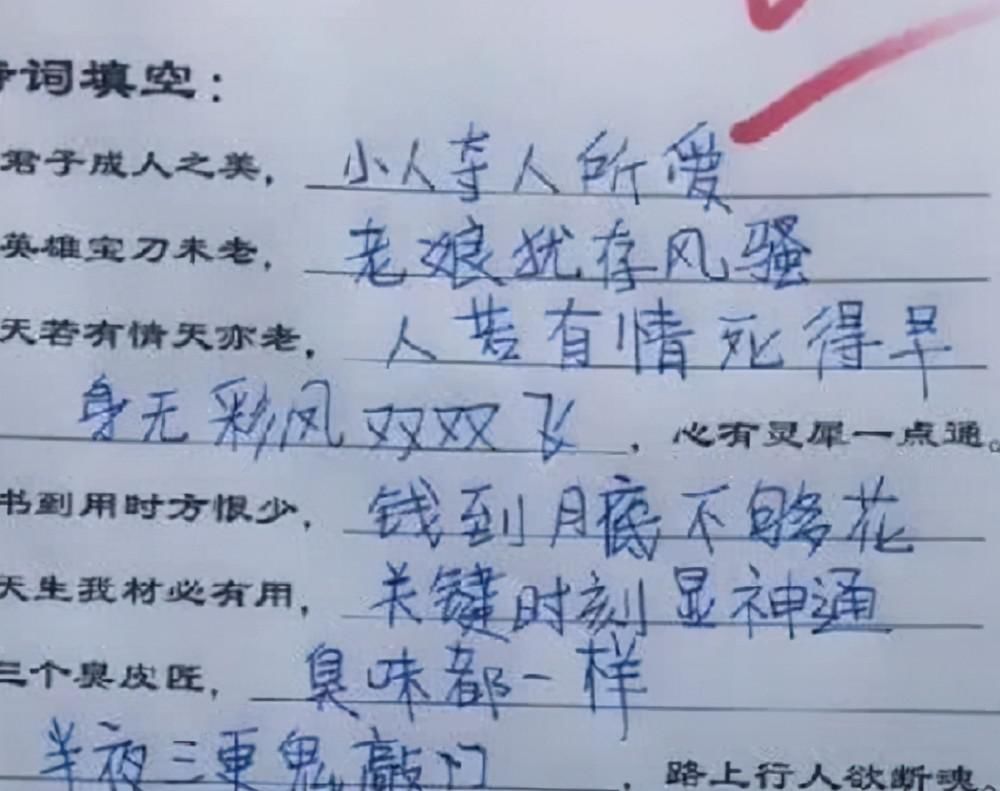 诗词填空：
君子成人之美，小人夺人所爱
英雄宝刀未老，老娘犹存风骚
天若有情天亦老，人若有情死得早
身无彩凤双双飞，心有灵犀一点通。
书到用时方恨少，钱到月底不够花
天生我材必有用，关键时刻显神通
三个臭皮匠，臭味都一样
半夜三更鬼敲门，路上行人欲断魂。